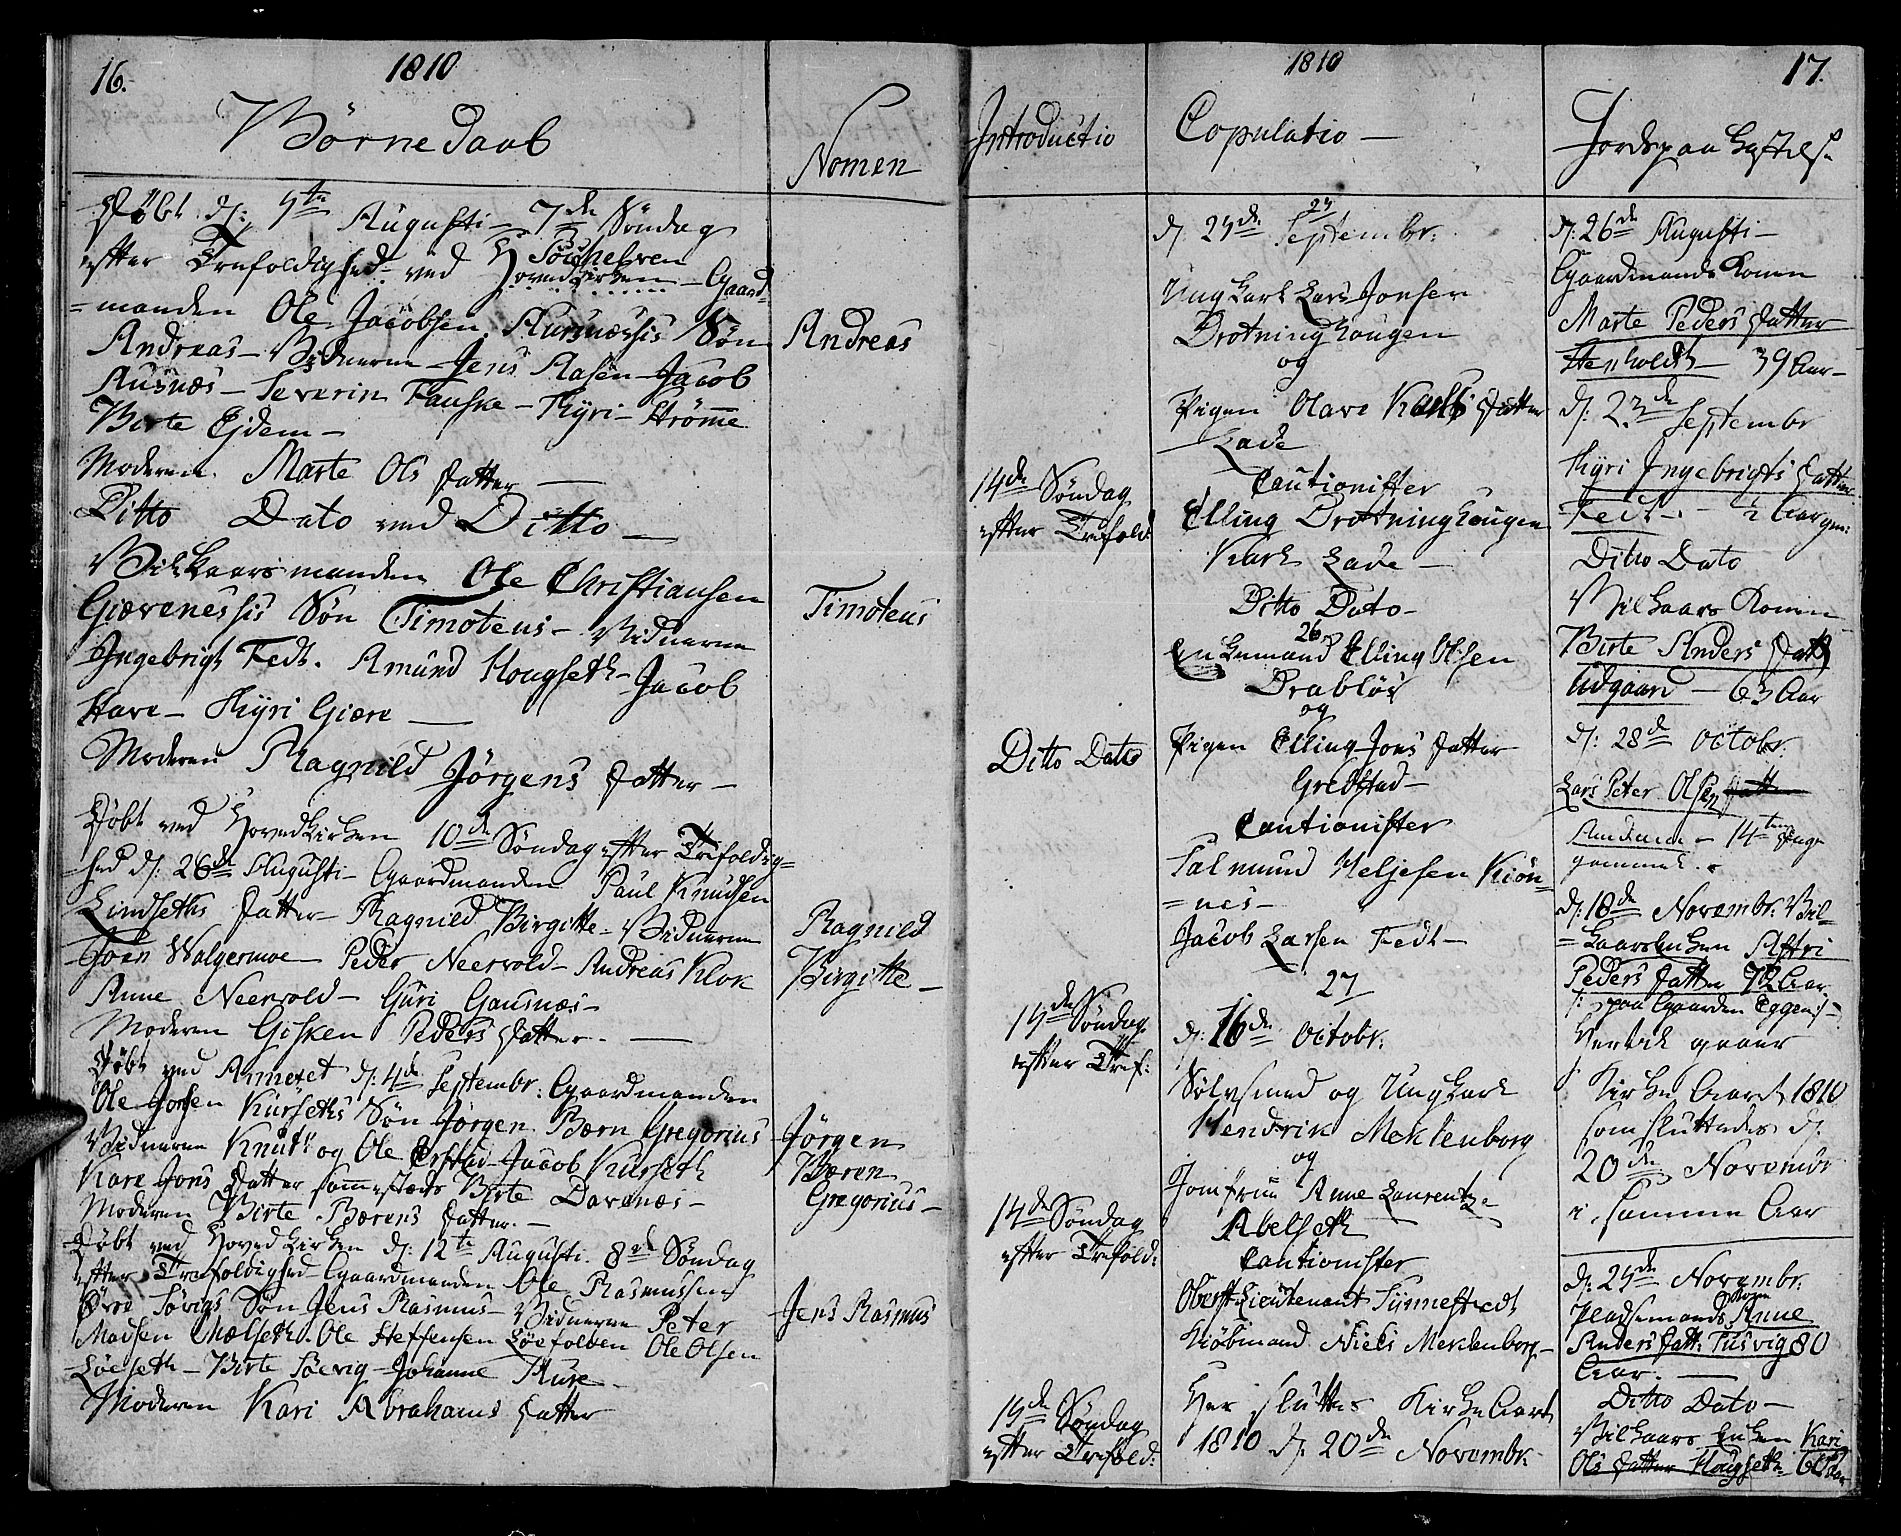 16.
1810
Børnedaab
Nomen
Døbt d: 5te Augusti 7de Søndag
efter Trefoldighed ved Hovedkirken - Gaard=
=manden Ole Jacobsen Aursnæssis Søn
Andreas - Vidnerne - Jens Aasen - Jacob
Ausnæs - Severin Fauske - Kyri Strømme
Birte Ejdem -
Moderen Marte Ols Datter -
Ditto Dato ved Ditto -
Vilkaarsmanden Ole Christiansen
Giævenessis Søn Timoteus - Vidnerne
Ingebrigt Fedt. Amund Hougseth - Jacob
Have - Kyri Giære -
Moderen Ragnild Jörgens Datter -
Døbt ved Hovedkirken 10de Søndag efter Trefoldig=
hed d: 26de Augusti - Gaardmanden Paul Knudsen
Lindseths Datter - Ragnild Birgitte - Vidnerne
Joen Walgermoe - Peder Neervold - Andreas Klok
Anne Neervold - Guri Gausnæs -
Moderen Gisken Peders Datter. -
Døbt ved Annexet d: 4de Septembr. Gaardmanden
Ole Jonsen Kurseths Søn Jørgen Bærn Gregorius
Vidnerne Knut og Ole Erstad - Jacob Kurseth
Kare Jons Datter sammestæds Birte Davenæs -
Moderen Birte Bærens Datter. -
Døbt ved Hovedkirken d: 12te Augusti. 8de Søndag
efter Trefoldighed - Gaardmanden Ole Rasmussen
Øvre Søvigs Søn Jens Rasmus - Vidnerne Peter
Madsen Mælseth. Ole Steffensen Løefolden Ole Olsen
Løeseth - Birte Søevig - Johanne Aure -
Moderen Kari Abrahams Datter
Andreas
Timoteus
Ragnild
Birgitte -
Jörgen
Bæren
Gregorius -
Jens Rasmus
1810
17.
Introductio
Copulatio -
Jordspaa Kastelse
14de Søndag
efter Trefold:
Ditto Dato
15de Søndag
efter Tref:
14de Søndag
efter Trefold:
15de Søndag
efter Trefold:
25
d: 23de Septembr:
Ung Karl Lars Jonsen
Drotninghougen
og
Pigen Olave Karls Datter
Lade
Cautionister
Elling Drotninghougen
Karl Lade -
Ditto Dato -
26
Enkemand Elling Olsen
Drabløs
og
Pigen Elling Jons Datter
Grebstad -
Cautionister
Salmund Heljesen Kiön=
=nes -
Jacob Larsen Fedt -
27
d: 16de Octobr.
Sølvsmed og Ungkarl
Hendrik Meklenborg
og
Jomfrue Anne Laurentze
Abelseth
Cautionister
Oberst-Lieutenant Synnestvedt
Kiöbmand Niels Meklenborg -
Her sluttes Kirke Aaret
1810 d: 20de Novembr.
d: 26de Augusti -
Gaardmands Konen
Marte Peders Datter
Stenholdt - 39 Aar -
d: 23de Septembr
Kyri Ingebrigts Datter
Fedt - ½ Aar gm:
Ditto Dato
Vilkaars Konen
Birte Anders Datt
Udgaard - 63 Aar
d: 28de Octobr.
Lars Peter Olsen
14ten Dage
gammel.
d: 18de Novembr. Vil=
=kaarsenken Astri
Peders Datter 72 Aar
/: paa Gaarden Eggen :/
Herved gaaer
Kirke Aaret 1810
som sluttedes d:
20de Novembr
i samme Aar
d: 25de Novembr.
Pladsemands Konen Anne
Anders Datt: Tusvig 80
Aar. -
Ditto Dato -
Vilkaars Enken Kari
Ols Datter Hougseth 60 Aar